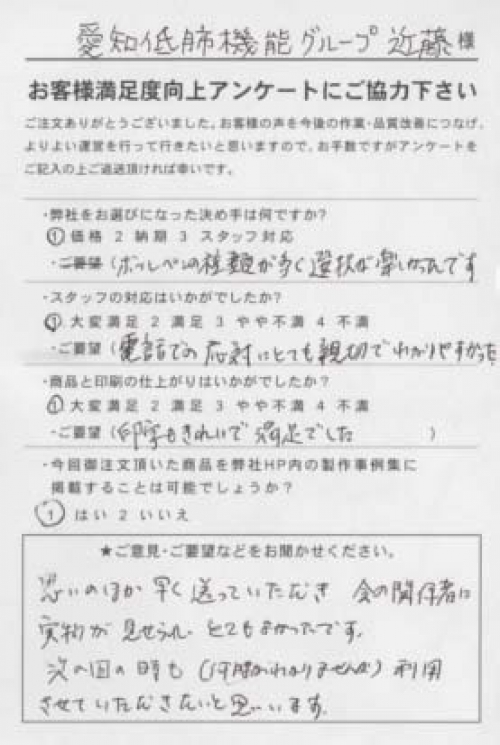 愛知低肺機能グループ 近藤様
お客様満足度向上アンケートにご協力下さい
ご注文ありがとうございました。お客様の声を今後の作業・品質改善につなげ、
よりよい運営を行って行きたいと思いますので、お手数ですがアンケートを
ご記入の上ご返送頂ければ幸いです。
・弊社をお選びになった決め手は何ですか?
①価格 2 納期 3 スタッフ対応
・ご要望(ボールペンの種類が多く選択が楽しかったです
・スタッフの対応はいかがでしたか?
①大変満足 2 満足 3 やや不満 4 不満
・ご要望(電話での応対はとても親切でわかりやすかった
・商品と印刷の仕上がりはいかがでしたか?
①大変満足 2 満足 3 やや不満 4 不満
・ご要望(印字もきれいで満足でした )
・今回御注文頂いた商品を弊社HP内の製作事例集に
掲載することは可能でしょうか?
①はい 2 いいえ
★ご意見・ご要望などをお聞かせください。
思いのほか早く送っていただき 会の関係者に
実物が見せられ、とてもよかったです。
次の回の時も(何時かわかりませんが)利用
させていただきたいと思います。